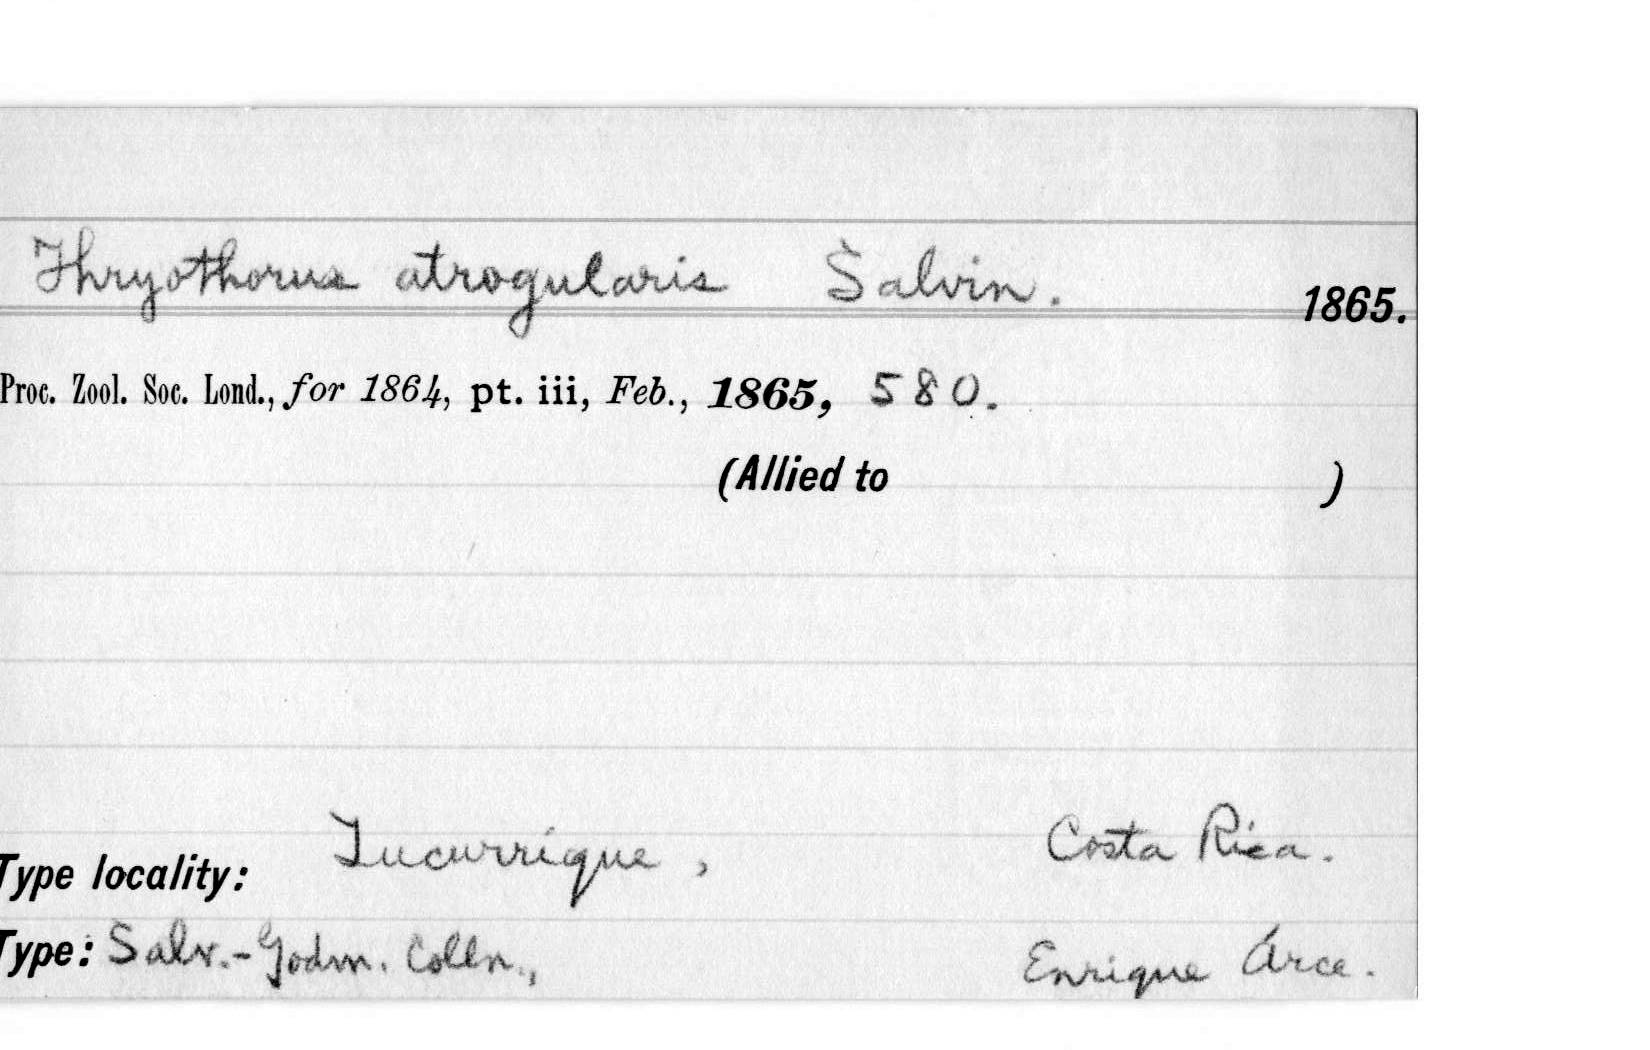 Thryothorus atrogularis Salvin. 1865.
Proc. Zool. Soc. Lond., for 1864, pt. iii, Feb., 1865, 580.
(Allied to )
Type locality: Tucurrique, Costa Rica.
Type: Salv.-Godm. Colln., Enrique Arce.